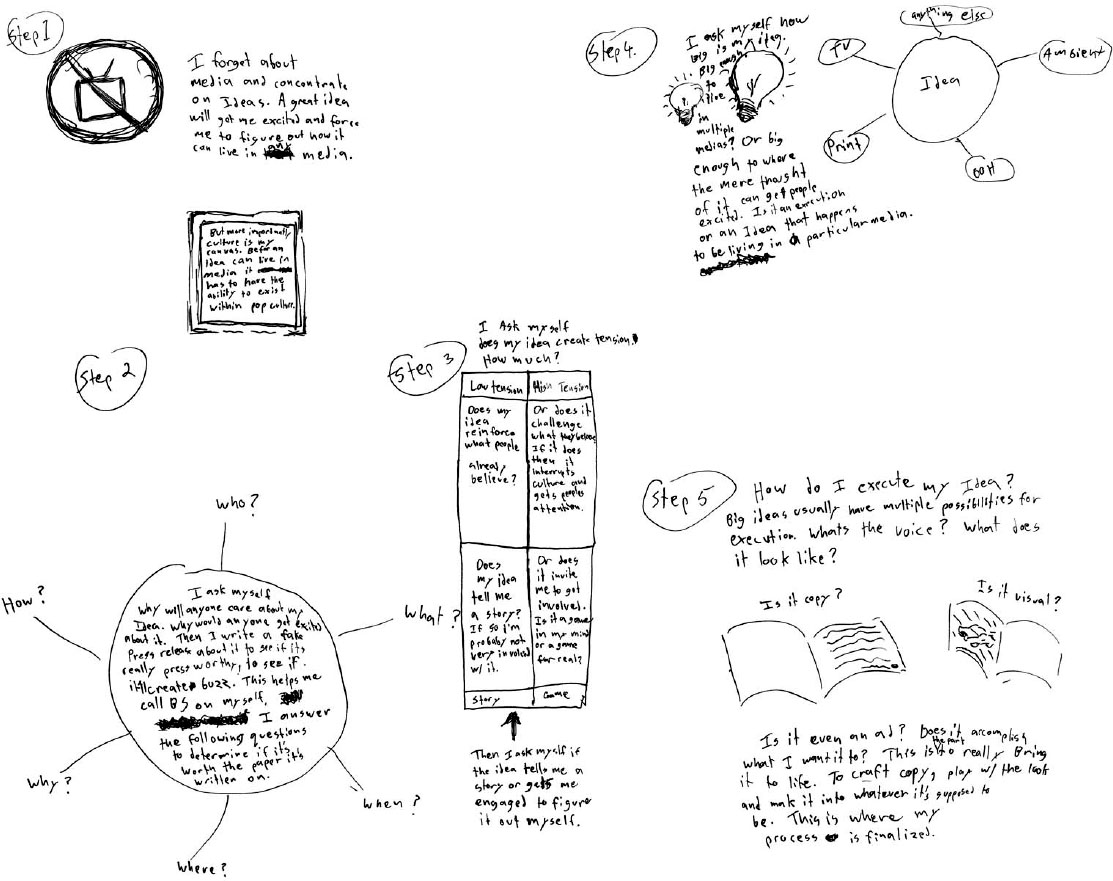 Step 1
I forget about
media and concentrate
on Ideas. A great idea
will get me excited and force
me to figure out how it
can live in any media.
But more importantly
culture is my
canvas. Before an
idea can live in
media it
has to have the
ability to exist
within pop culture.
Step 2
who?
What?
when?
where?
Why?
How?
I ask myself
why will anyone care about my
Idea. Why would anyone get excited
about it. Then I write a fake
Press release about it to see if its
really press worthy, to see if
it'll create buzz. This helps me
call BS on myself.
I answer
the following questions
to determine if it's
worth the paper it's
written on.
Step 3
I Ask myself
does my idea create tension.
How much?
Low tension
High Tension
Does my
idea
reinforce
what people
already
believe?
Or does it
challenge
what they believe
If it does
then it
interrupts
culture and
gets peoples
attention.
Does
my idea
tell me
a story?
If so i'm
probably not
very involved
w/ it.
Or does
it invite
me to get
involved.
Is it a game
in my mind
or a game
for real?
Story
Game
Then I ask myself if
the idea tells me a
story or gets me
engaged to figure
it out myself.
Step 4.
I ask myself how
Big is my idea.
Big enough
to
live
in
multiple
medias? Or big
enough to where
the mere thought
of it can get people
excited. Is it an execution
or an Idea that happens
to be living in a particular media.
Idea
anything else
Ambient
OOH
Print
TV
Step 5
How do I execute my Idea?
Big ideas usually have multiple possibilities for
execution. Whats the voice? What does
it look like?
Is it copy?
Is it visual?
Is it even an ad? Does it accomplish
what I want it to? This is the part to really Bring
it to life. To craft copy, play w/ the look
and make it into whatever it's supposed to
be. This is where my
process is finalized.